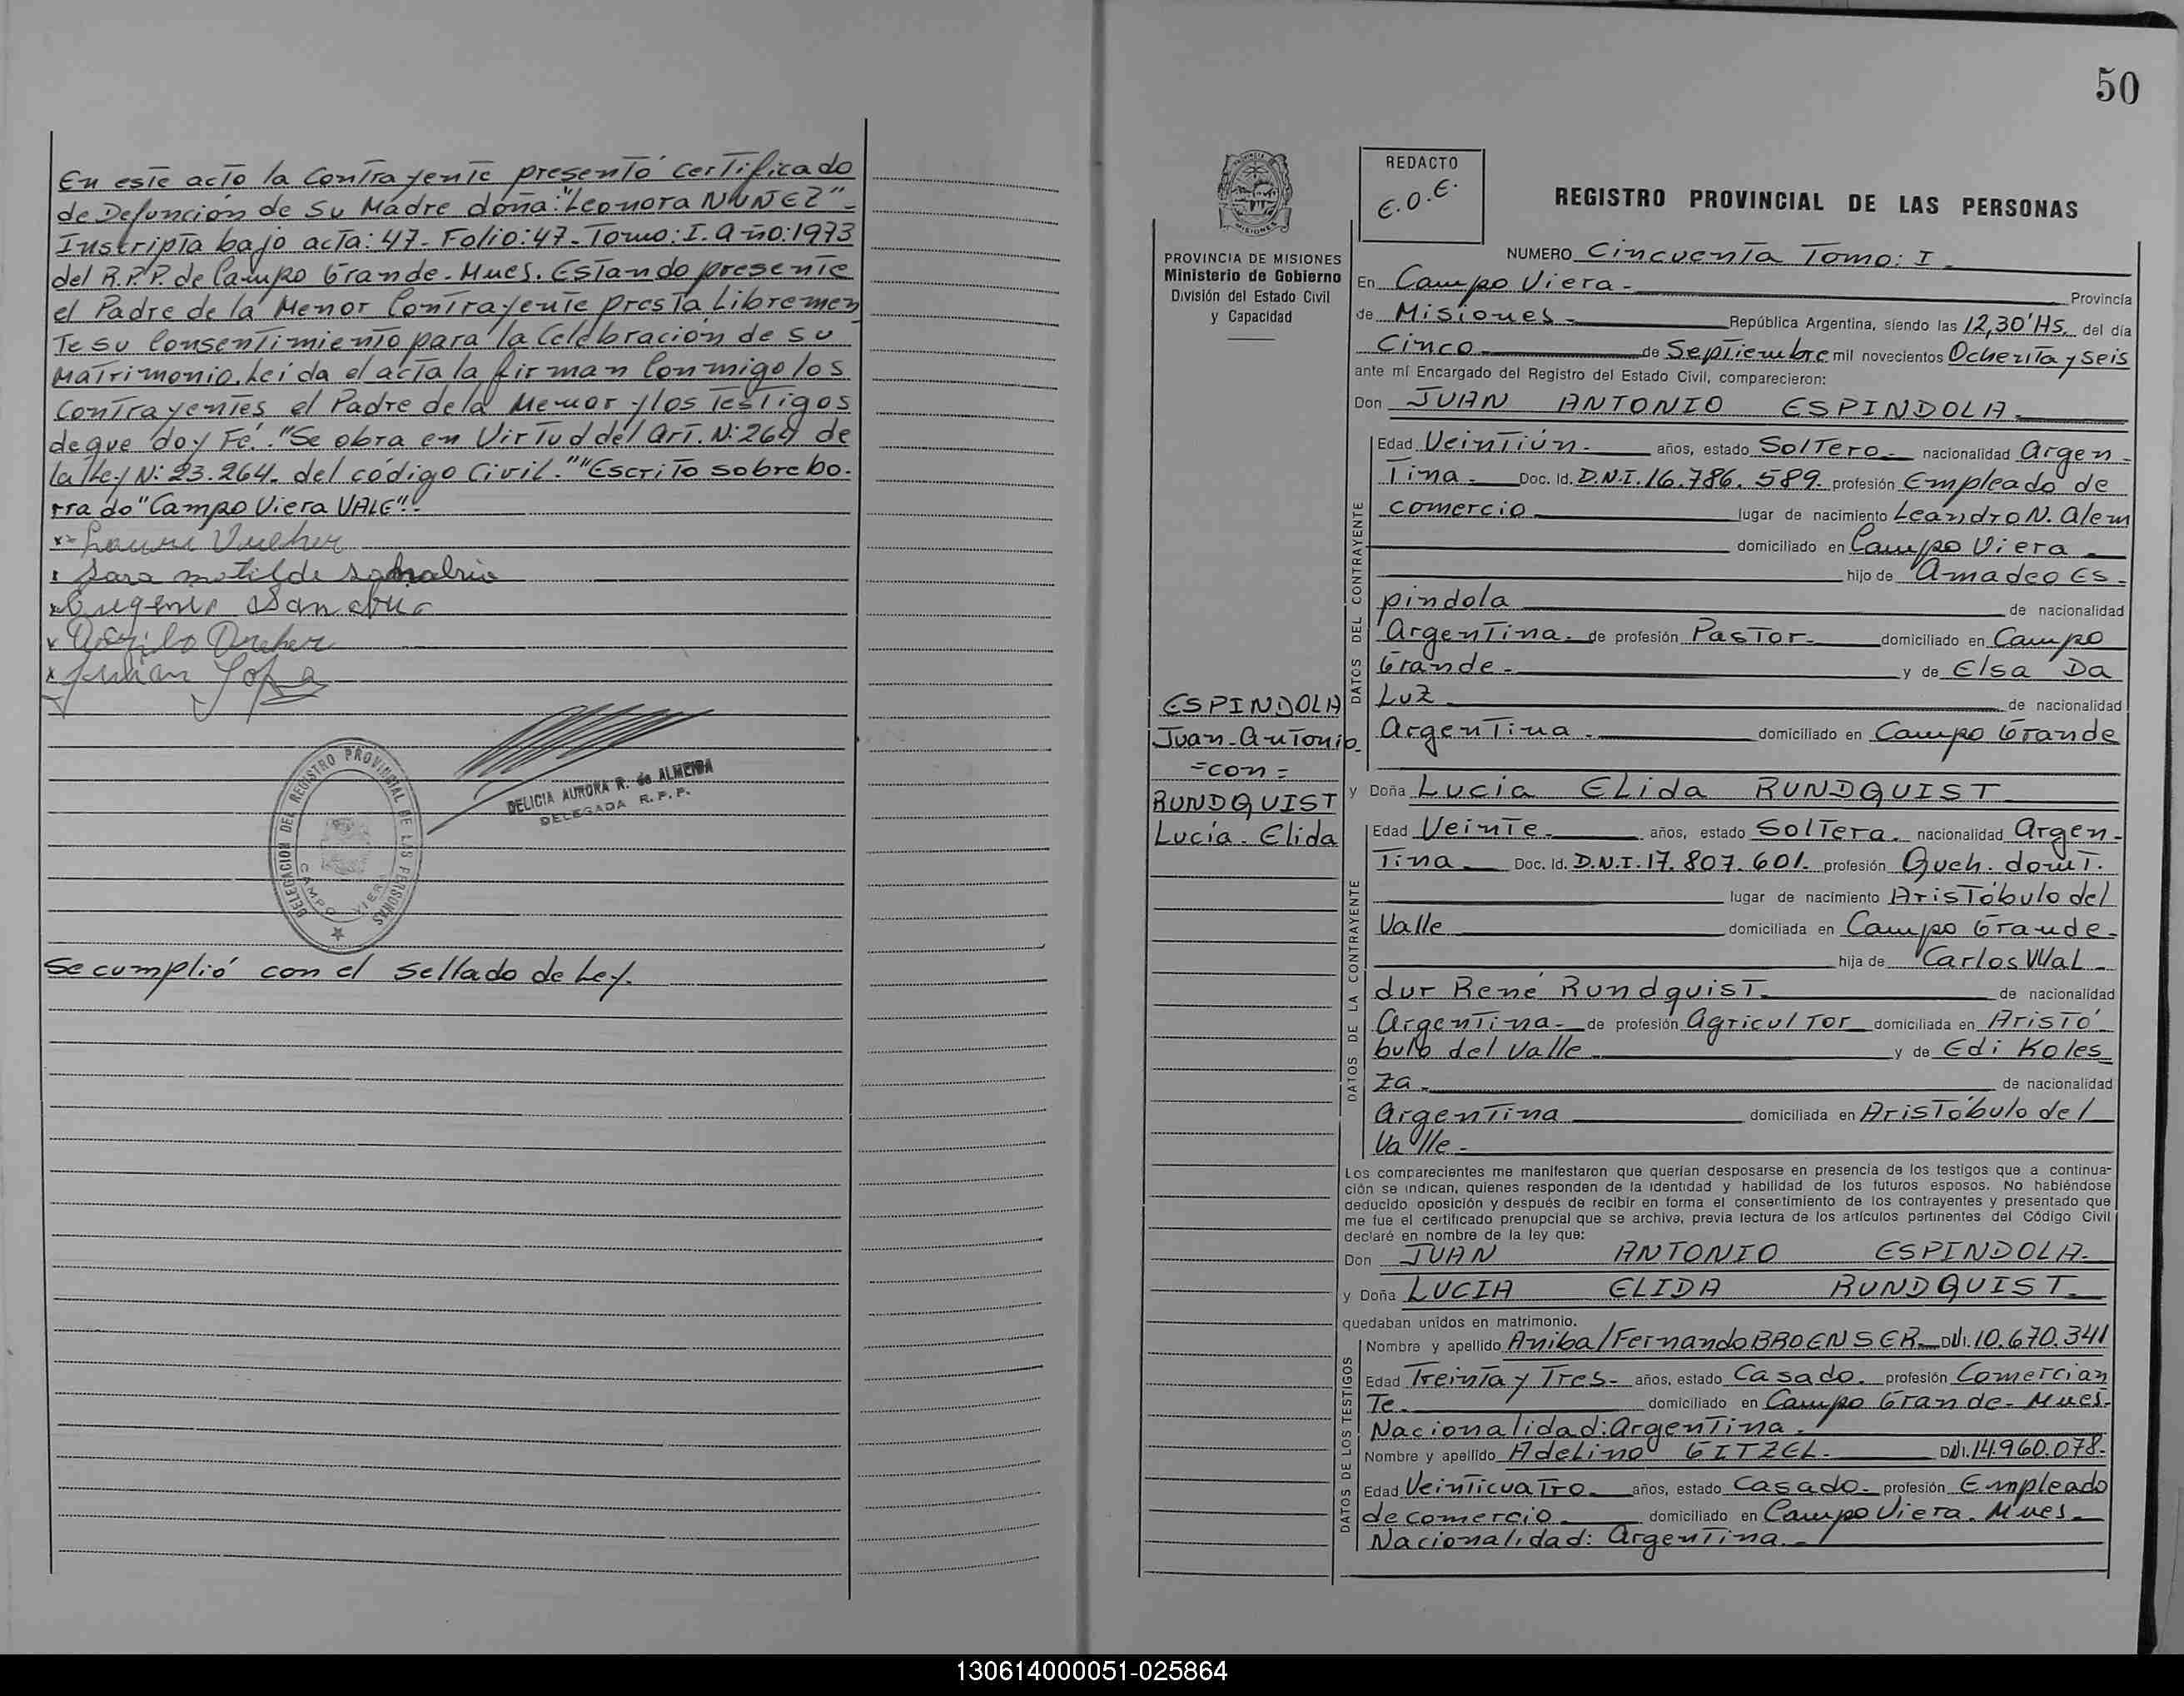 En este acto la Contrayente presentó Certificado
de Defunción de Su Madre doña: "Leonora NUÑEZ"-
Inscripta bajo acta: 47- Folio: 47- Tomo: I. año: 1973
del R.P.P. de Campo Grande- Mnes. Estando presente
el Padre de la Menor Contrayente presta Libremen
Te su Consentimiento para la Celebración de su
Matrimonio. Leída el acta la firman Conmigo los
Contrayentes el Padre de la Menor y los Testigos
de que doy Fé. "Se obra en Virtud del Art. N: 264 de
la Ley N: 23.264. del código Civil." "Escrito sobre bo-
rrado "Campo Viera VALE"!-
Sara matilde
DELEGACION DEL REGISTRO PROVINCIAL DE LAS PERSONAS
CAMPO VIERA
DELICIA AURORA R. de ALMEIDA
DELEGADA R.P.P.
Se cumplió con el Sellado de Ley.
50
PROVINCIA DE MISIONES
Ministerio de Gobierno
División del Estado Civil
y Capacidad
ESPINDOLA
Juan-Antonio
=con=
RUNDQUIST
Lucía-Elida
REDACTO
E.O.E.
REGISTRO PROVINCIAL DE LAS PERSONAS
NUMERO Cincuenta Tomo: I
En Campo Viera- Provincia
de Misiones- República Argentina, siendo las 12,30'Hs. del día
Cinco de Septiembre mil novecientos Ochenta y seis
ante mí Encargado del Registro del Estado Civil, comparecieron:
Don JUAN ANTONIO ESPINDOLA
DATOS DEL CONTRAYENTE
Edad Veintiún- años, estado Soltero- nacionalidad Argen-
Tina- Doc. Id. D.N.I. 16.786.589- profesión Empleado de
comercio lugar de nacimiento Leandro N. Alem
domiciliado en Campo Viera-
hijo de Amadeo Es-
pindola de nacionalidad
Argentina- de profesión Pastor- domiciliado en Campo
Grande- y de Elsa Da
Luz de nacionalidad
Argentina- domiciliado en Campo Grande
y Doña Lucia ELida RUNDQUIST
DATOS DE LA CONTRAYENTE
Edad Veinte- años, estado Soltera. nacionalidad Argen-
Tina- Doc. Id. D.N.I. 17.807.601. profesión Queh. domt.
lugar de nacimiento Aristóbulo del
Valle domiciliada en Campo Grande-
hija de Carlos Wal-
dur René Rundquist- de nacionalidad
Argentina- de profesión Agricultor domiciliada en Aristó
bulo del Valle y de Edi Koles
za- de nacionalidad
Argentina domiciliada en Aristóbulo del
Valle-
Los comparecientes me manifestaron que querían desposarse en presencia de los testigos que a continua-
ción se indican, quienes responden de la identidad y habilidad de los futuros esposos. No habiéndose
deducido oposición y después de recibir en forma el consentimiento de los contrayentes y presentado que
me fue el certificado prenupcial que se archiva, previa lectura de los artículos pertinentes del Código Civil
declaré en nombre de la ley que:
Don JUAN ANTONIO ESPINDOLA-
y Doña LUCIA ELIDA RUNDQUIST-
quedaban unidos en matrimonio.
DATOS DE LOS TESTIGOS
Nombre y apellido Anibal Fernando BROENSER- DNI. 10.670.341
Edad Treinta y Tres- años, estado Casado. profesión Comercian
Te- domiciliado en Campo Grande- Mnes-
Nacionalidad: Argentina-
Nombre y apellido Adelino GITZEL- DNI. 14.960.078-
Edad Veinticuatro- años, estado Casado- profesión Empleado
de comercio- domiciliado en Campo Viera. Mnes-
Nacionalidad: Argentina.-
130614000051-025864